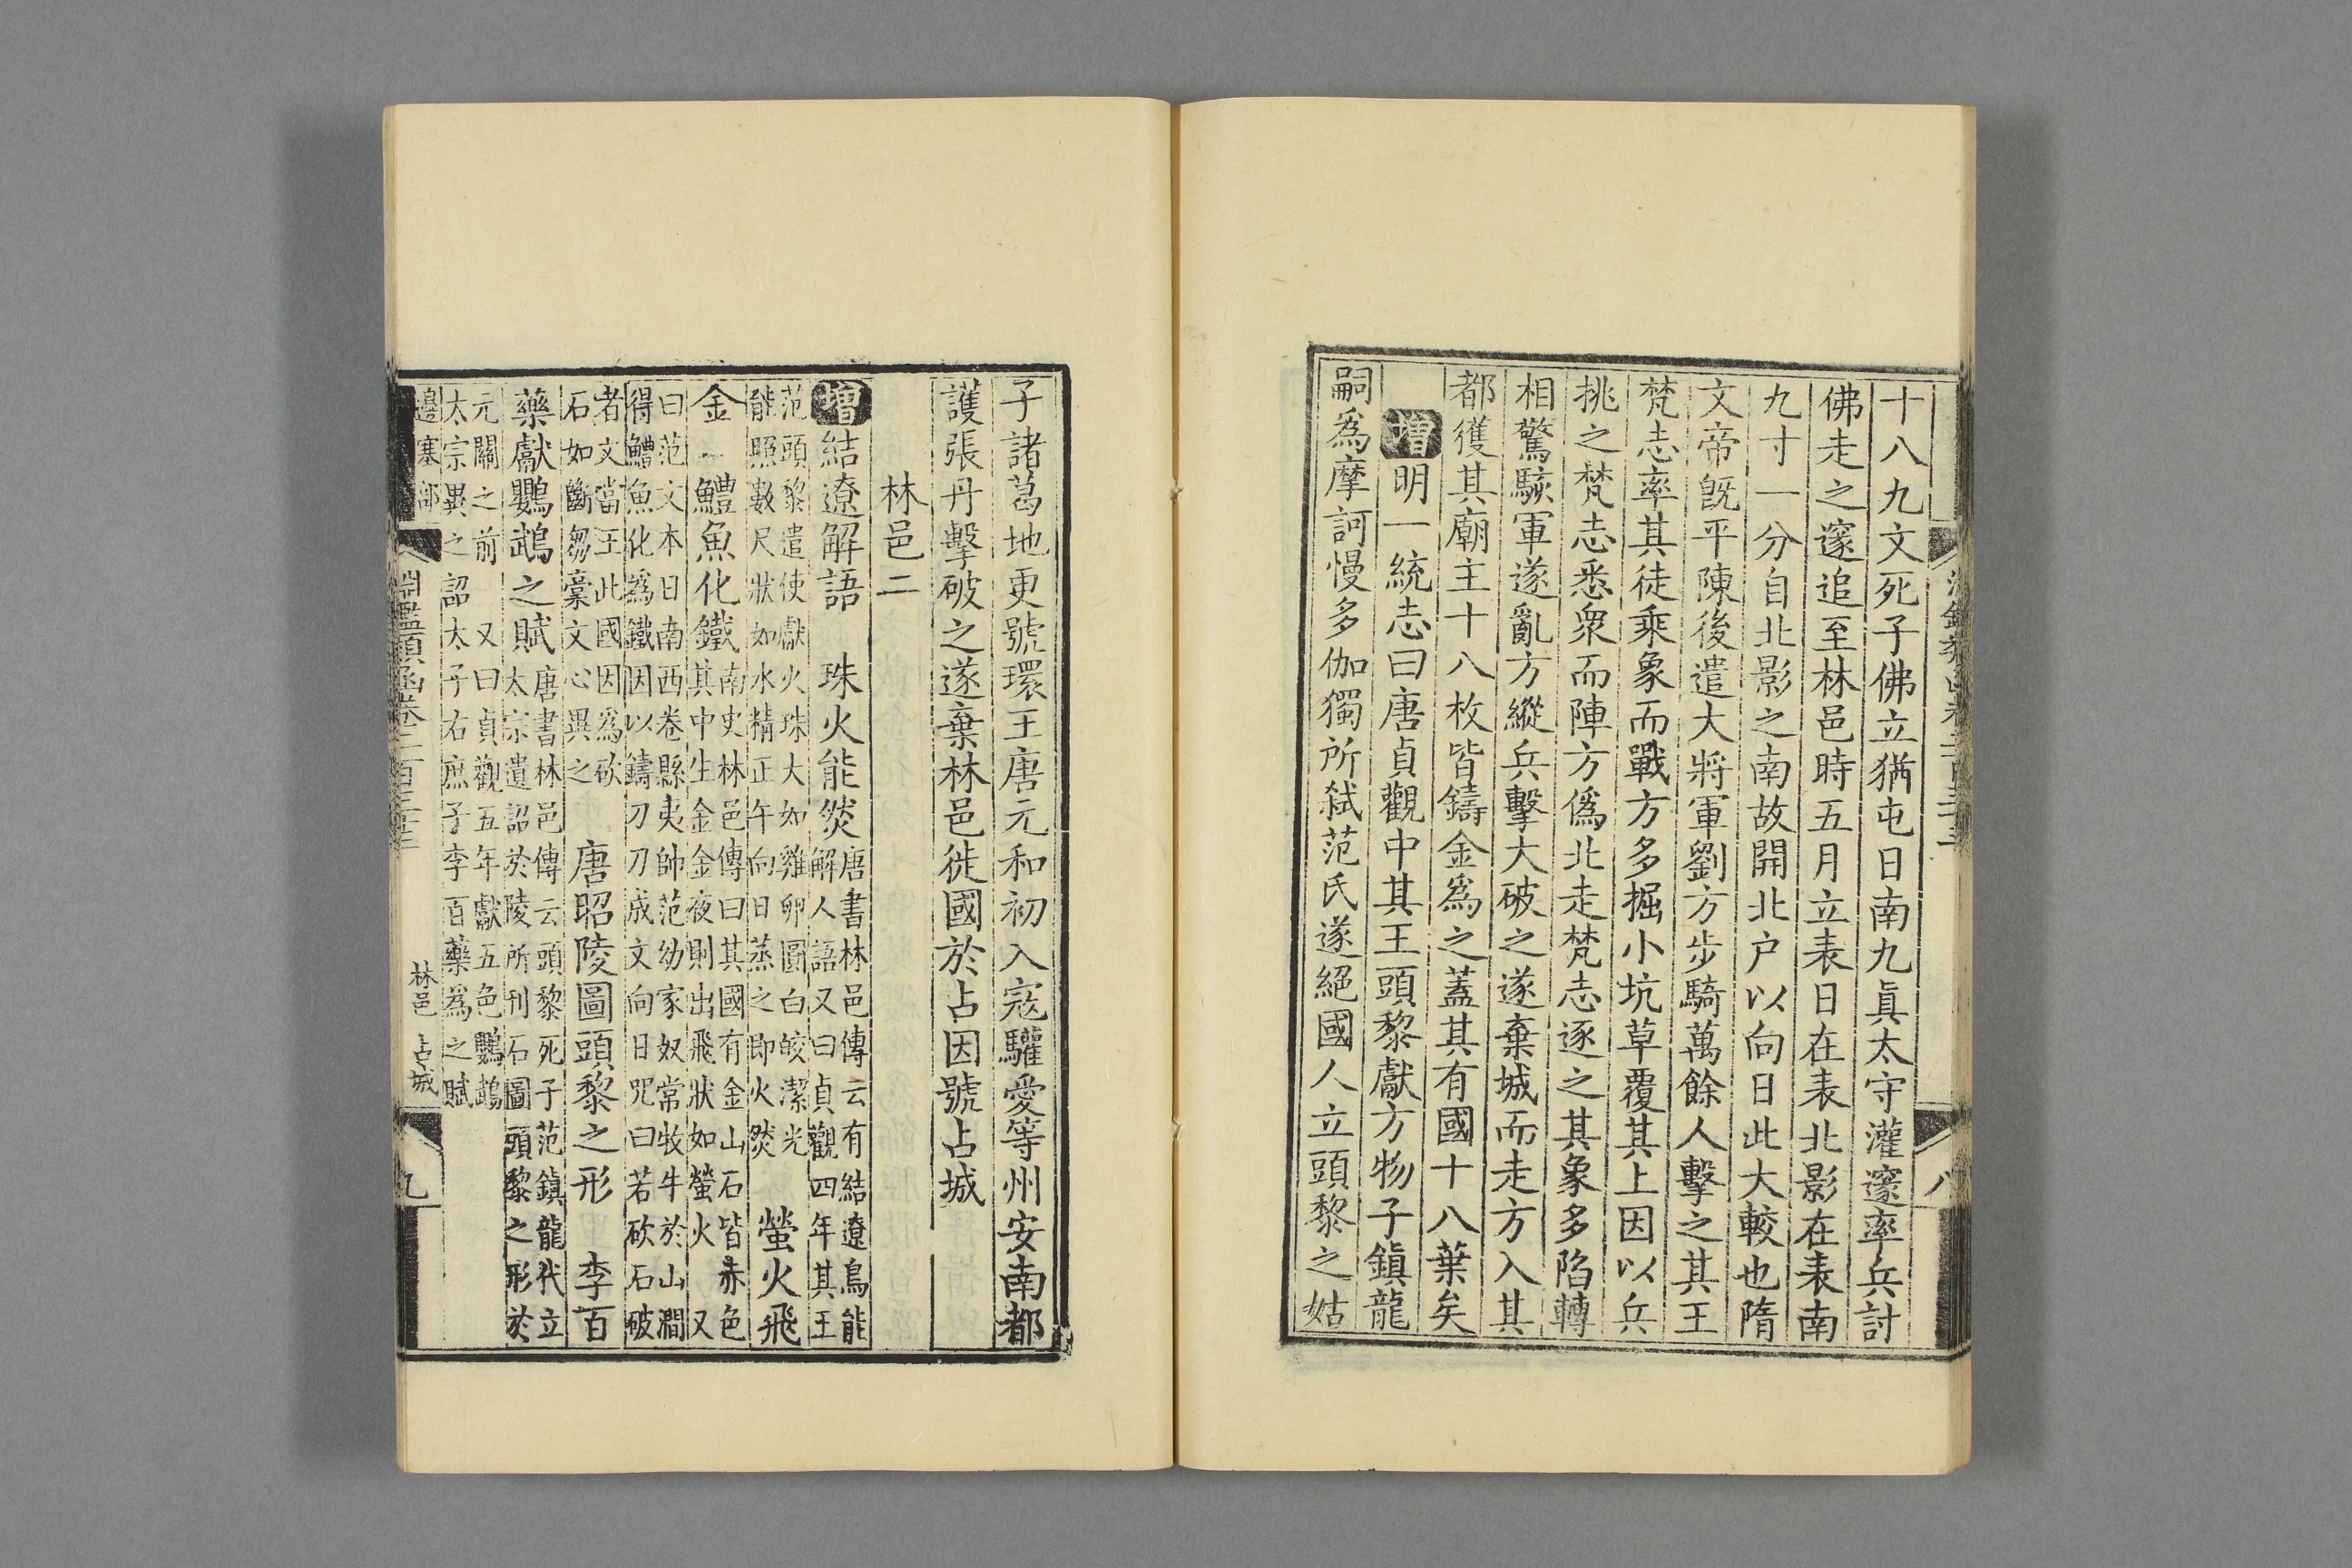 十八九文死子佛立猶屯日南九眞太守灌邃率兵討
佛走之邃追至林邑時五月立表日在表北影在表南
九寸一分自北影之南故開北户以向日此大較也隋
文帝旣平陳後遣大將軍劉方步騎萬餘人擊之其王
梵志率其徒乘象而戰方多掘小坑草覆其上因以兵
挑之梵志悉衆而陣方僞北走梵志逐之其象多陷轉
相驚駭軍遂亂方縱兵擊大破之遂棄城而走方入其
都獲其廟主十八枚皆鑄金爲之蓋其有國十八葉矣
增明一統志曰唐貞觀中其王頭黎獻方物子鎭龍
嗣爲摩訶慢多伽獨所弑范氏遂絕國人立頭黎之姑
八
子諸葛地更號環王唐元和初入寇驩愛等州安南都
護張丹擊破之遂棄林邑徙國於占因號占城
林邑二
增結遼解語 珠火能燃唐書林邑傳云有結遼鳥能
解人語又曰貞觀四年其王
范頭黎遣使獻火珠大如雞卵圓白皎潔光
能照數尺狀如水精正午向日蒸之即火燃 螢火飛
金 鱧魚化鐵南史林邑傳曰其國有金山石皆赤色
其中生金金夜則出飛狀如螢火 又
曰范文本日南西卷縣夷帥范幼家奴常牧牛於山澗
得鱧魚化爲鐵因以鑄刀刀成文向日咒曰若砍石破
者文當王此國因爲砍
石如斷芻藁文心異之 唐昭陵圖頭黎之形 李百
藥獻鸚鵡之賦唐書林邑傳云頭黎死子范鎮龍代立
太宗遺詔於陵所刊石圖頭黎之形於
元闕之前 又曰貞觀五年獻五色鸚鵡
太宗異之詔太子右庶子李百藥爲之賦
邊塞部 淵鑑類函卷二百三十三 林邑 占城 九